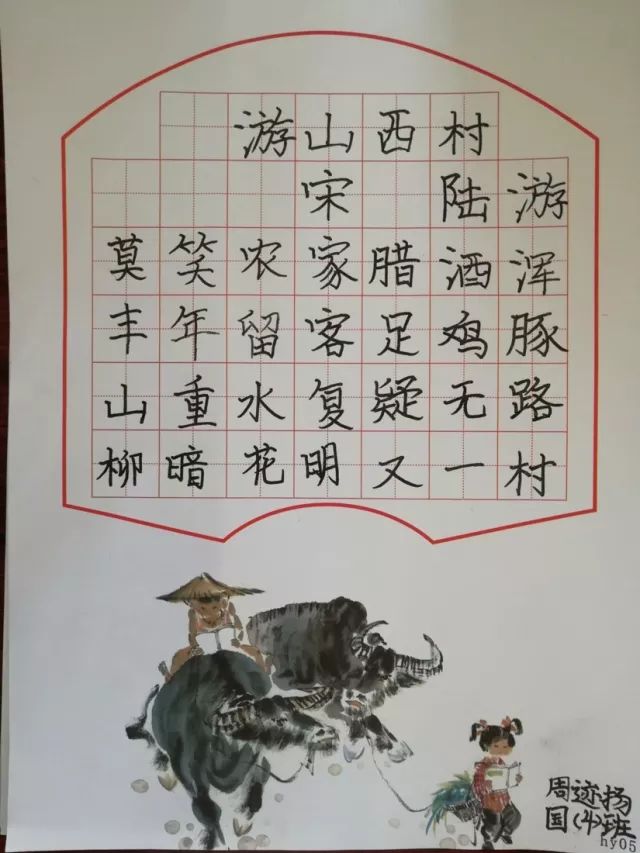 游山西村
宋 陆游
莫笑农家腊酒浑
丰年留客足鸡豚
山重水复疑无路
柳暗花明又一村
周迹扬
国(4)班
hy05